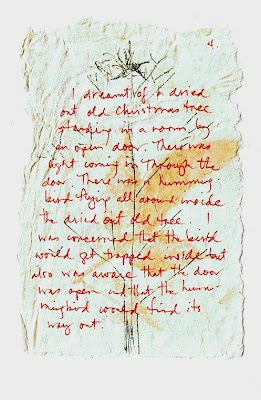 4.
I dreamt of a dried
out old Christmas tree
standing in a room by
an open door. There was
light coming in through the
door. There was a humming
bird flying all around inside
the dried out old tree. I
was concerned that the bird
would get trapped inside but
also was aware that the door
was open and that the hum-
mingbird would find its
way out.